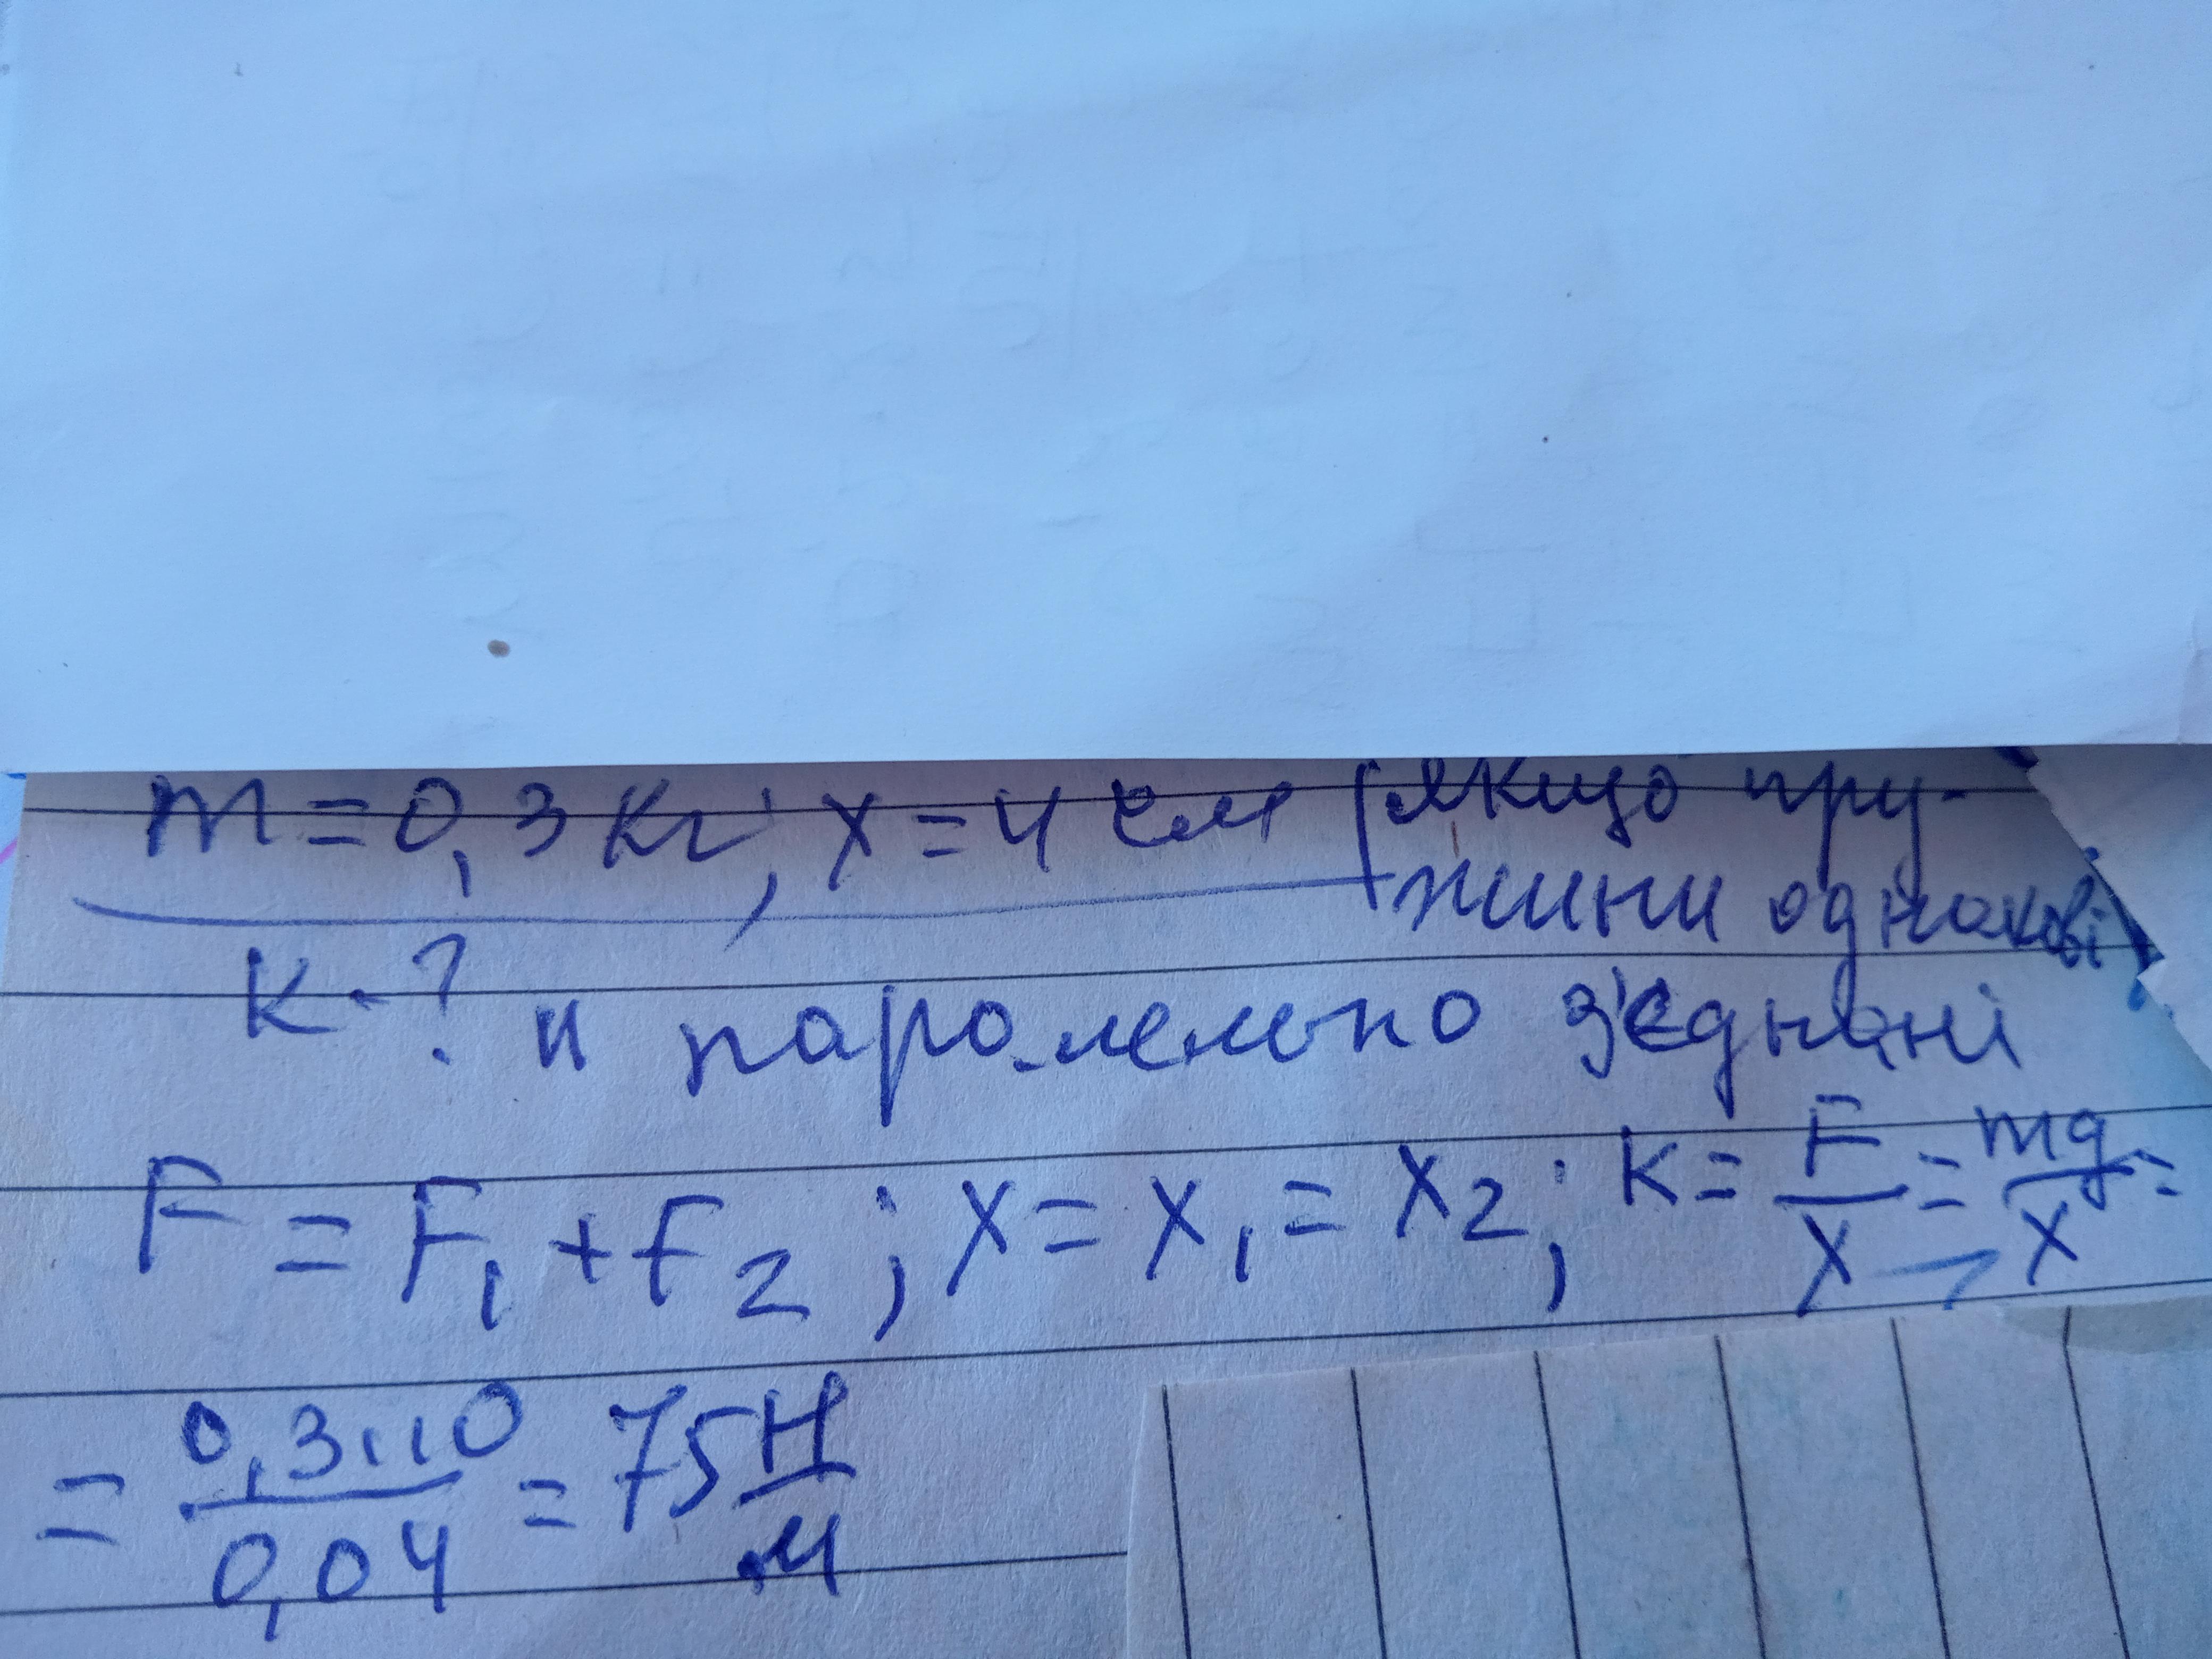 m = 0,3 кг, x = 4 см якщо пру-
жини однакові
к - ? и паралельно з'єднані
F = F₁ + F₂ ; x = x₁ = x₂ ; к = F/x = mg/x =
= 0,3·10/0,04 = 75 Н/м